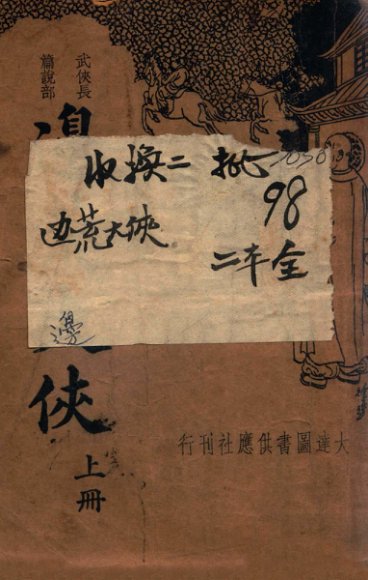 武俠長
篇說部
邊
俠
上冊
收換二批
98
边荒大俠
二本全
邊
大達圖書供應社刊行